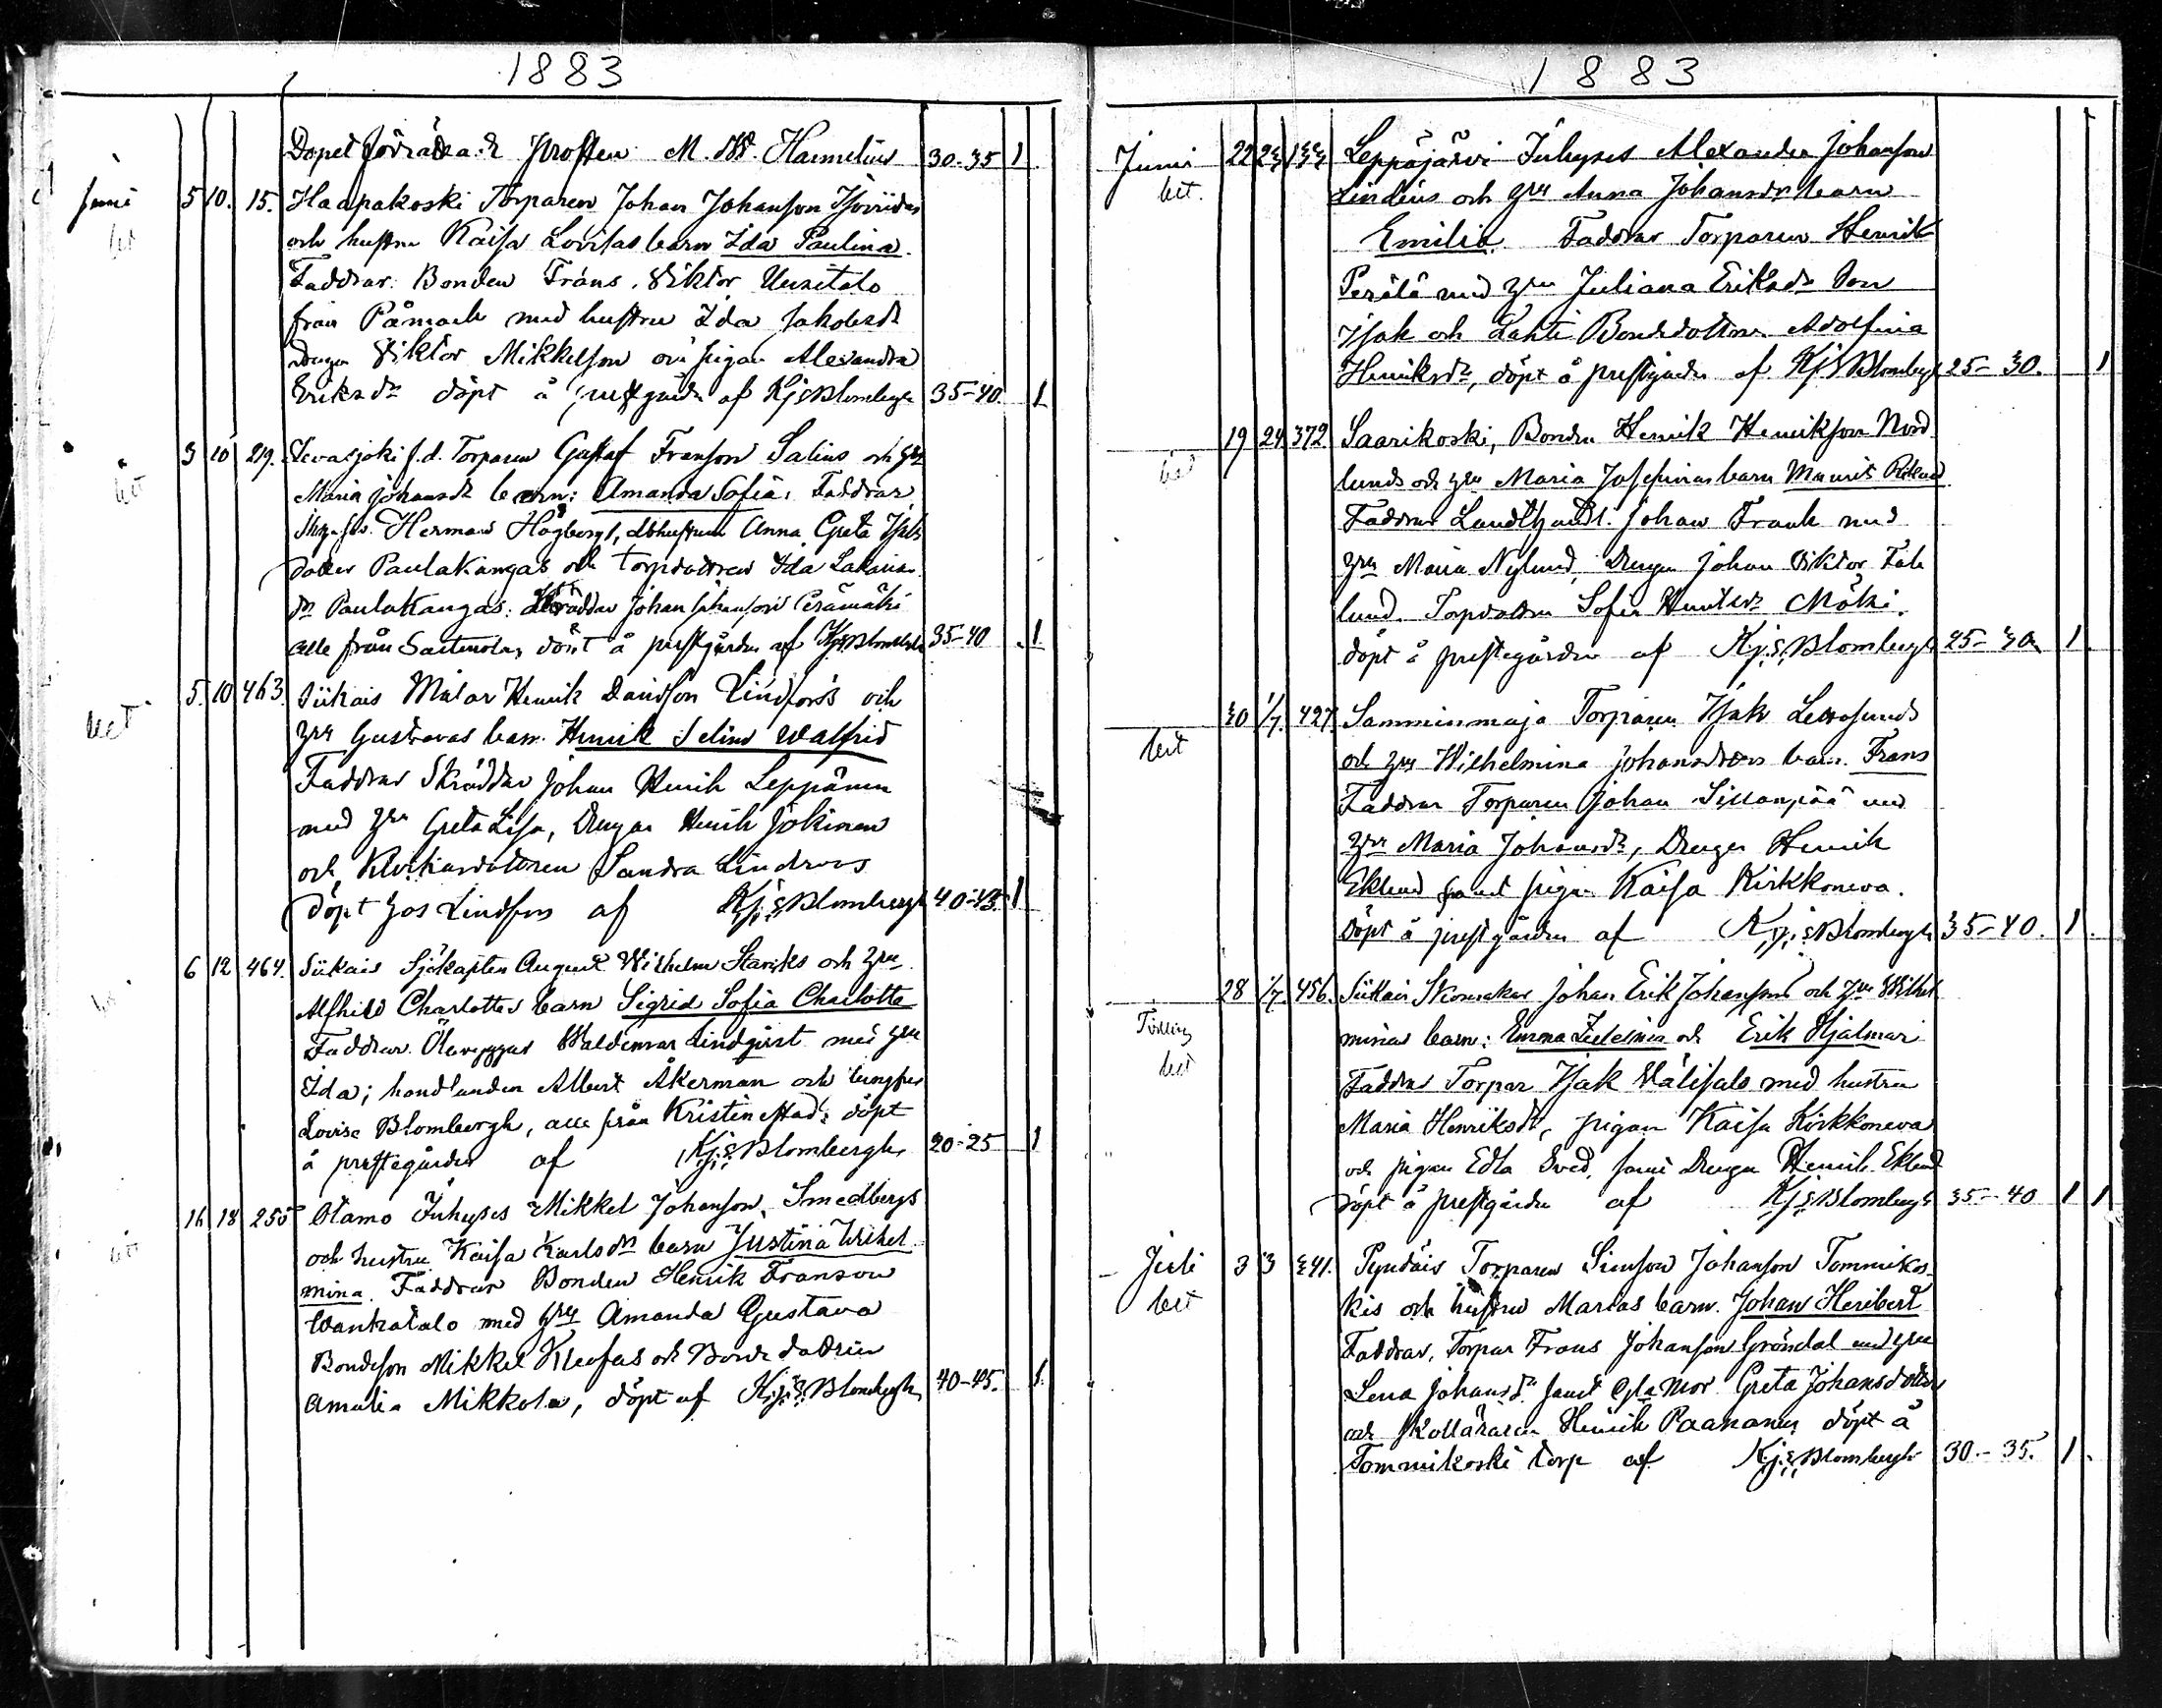 1883
Dopet förrättade Prosten M. W. Hamelius 30-35 1
Juni 5 10. 15. Haapakoski Torparen Johan Johanson
och hustru Kaisa Lovisas barn Ida Paulina.
Faddrar: Bonden Frans Viktor Uusitalo
från Påmark med hustru Ida Jakobsdr
Drengen Viktor Mikkelson och pigan Alexandra
Eriksdr döpt å prestgården af Kj:s Blombergh 35-40. 1
3 10 219. f.d. Torparen Gustaf Franson Salins och
Maria Johansdr barn: Amanda Sofia. Faddrar
Herman Högberg, Anna Greta
dotter Paulakangas och Torpdottren Ida
dr Paulakangas. Skräddar Johan Johanson Perämäki
alle från Sastmola, döpt å prestgården af Kj:s Blombergh 35-40 1
bet 5. 10 463. Siikais Målar Henrik Davidson Lindforss och
hru Gustavas barn. Henrik Selim Walfrid
Faddrar Skräddar Johan Henrik Leppänen
med hru Greta Lisa, Drengen Henrik Jokinen
och Klockardottren Sandra Lindroos
döpt hos Lindfors af Kj:s Blombergh 40-45. 1
6 12 464. Siikais Sjökapten August Wilhelm Starcks och hru
Alfhild Charlottes barn Sigrid Sofia Charlotte
Faddrar. Ölbryggar Waldemar Lindqvist med hru
Ida; handlanden Albert Åkerman och Jungfru
Lovisa Blombergh, alla från Kristinestad; döpt
å prestegården af Kj:s Blombergh 20-25 1
16 18 255 Otamo Inhyses Mikkel Johanson Smedbergs
och hustru Kaisa Karlsdr barn Justina Wilhel
mina. Faddrar Bonden Henrik Franson
Wankatalo med hru Amanda Gustava
Bondeson Mikkel Kleofas och Bondedottren
Amalia Mikkola, döpt af Kj:s Blombergh 40-45. 1
1883
Juni bet. 22 24 Leppäjärvi Inhyses Alexander Johanson
Lindéns och hru Anna Johansdr barn
Emilia. Faddrar Torparen Henrik
Perälä med hru Juliana Eriksdr Son
Isak och Lahti Bondedottren Adolfina
Henriksdr, döpt å prestgården af Kj:s Blombergh 25-30. 1
bet 19 24 372 Saarikoski, Bonden Henrik Henrikson Nord
lunds och hru Maria Josefinas barn Maurits
Faddrar Landthandl. Johan Frank med
hru Maria Nylund, Drengen Johan Viktor
lund. Torpdottren Sofia Mäki.
döpt å prestegården af Kj:s Blombergh 25-30 1
bet 30 1/7. 427. Samminmaja Torparen Isak
och hru Wilhelmina Johansdotters barn. Frans
Faddrar Torparen Johan Sillanpää med
hru Maria Johansdr, Drengen Henrik
Eklund samt pigan Kaisa Kirkkoneva.
döpt å prestgården af Kj:s Blombergh 35-40. 1.
Tvilling bet 28 1/7. 456. Siikais Skomakar Johan Erik Johanson och hru Wilhel
minas barn: Emma och Erik Hjalmar
Faddrar Torpar Isak Välisalo med hustru
Maria Henriksdr, pigan Kaisa Kirkkoneva
och pigan Edla Sved, samt Drengen Henrik Eklund
döpt å prestgården af Kj:s Blombergh 35-40 1 1
Juli bet 3 3 Torparen Simson Johanson Tommikos-
kis och hustru Marias barn. Johan Heribert
Faddrar, Torpar Frans Johanson Gröndal med hru
Lena Johansdr samt Gla Mor Greta Johansdotter
och Skolläraren Henrik Paananen döpt å
Tommikoski torp af Kj:s Blombergh 30.-35. 1.